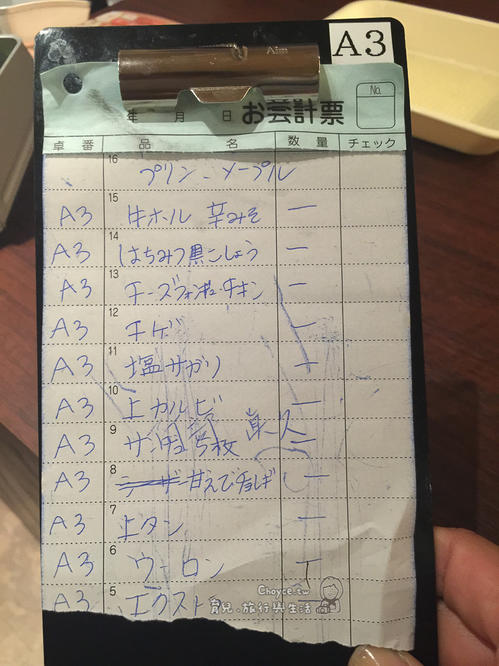 Aim
A3
No.
年 月 日 お会計票
卓番 品名 数量 チェック
16 プリン、メープル
A3 15 牛ホル 辛みそ 一
A3 14 はちみつ黒こしょう 一
A3 13 チーズフォンデュ・チキン 一
A3 12 チゲ 一
A3 11 塩サガリ 一
A3 10 上カルビ 一
A3 9 サンチュ5枚
A3 8 甘えびチョレギ 一
A3 7 上タン 一
A3 6 ウーロン T
A3 5 エクスト
Choyce.tw
育兒.旅行與生活